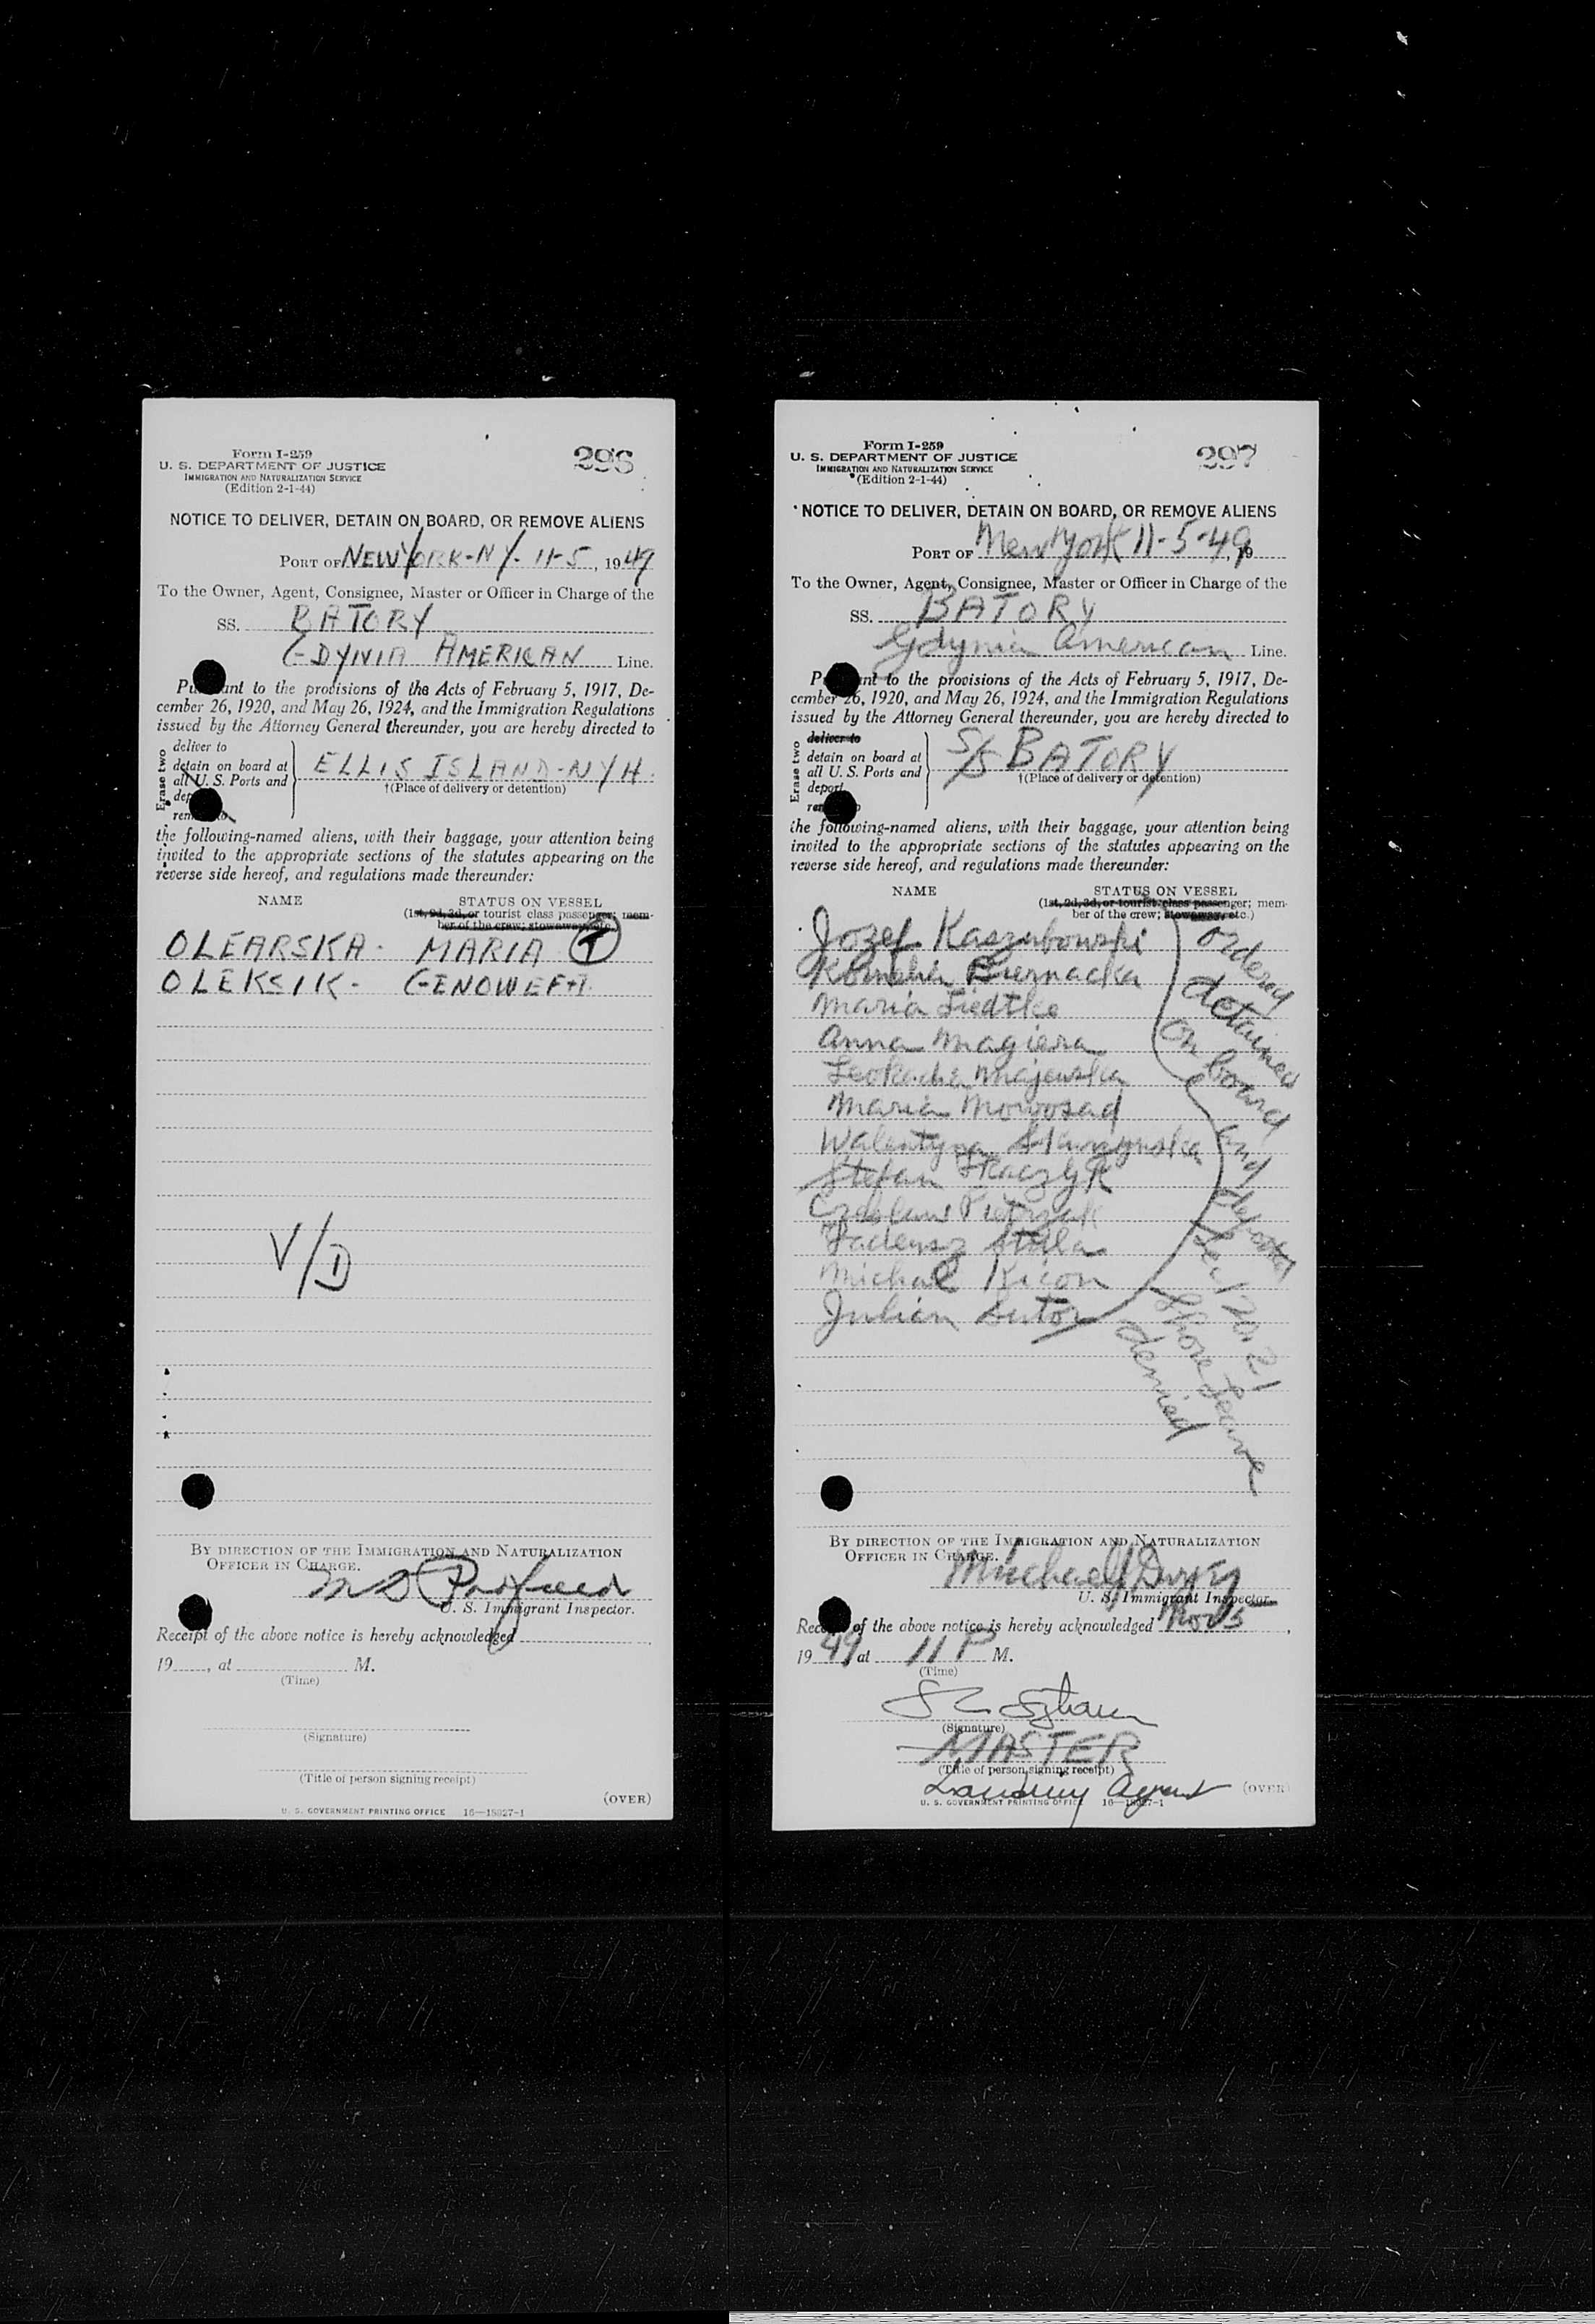 Form I-259
U. S. DEPARTMENT OF JUSTICE
IMMIGRATION AND NATURALIZATION SERVICE
(Edition 2-1-44)
296
NOTICE TO DELIVER, DETAIN ON BOARD, OR REMOVE ALIENS
PORT OF NEW YORK-NY- 11-5, 1949
To the Owner, Agent, Consignee, Master or Officer in Charge of the
SS. BATORY
GDYNIA AMERICAN Line.
Pursuant to the provisions of the Acts of February 5, 1917, De-
cember 26, 1920, and May 26, 1924, and the Immigration Regulations
issued by the Attorney General thereunder, you are hereby directed to
Erase two
deliver to
detain on board at
all U. S. Ports and
deport
remove to
ELLIS ISLAND-NYH.
†(Place of delivery or detention)
the following-named aliens, with their baggage, your attention being
invited to the appropriate sections of the statutes appearing on the
reverse side hereof, and regulations made thereunder:
NAME STATUS ON VESSEL
(1st, 2d, 3d, or tourist class passenger; mem-
ber of the crew; stowaway, etc.)
OLEARSKA- MARIA T
OLEKSIK- GENOWEFA
V/D
BY DIRECTION OF THE IMMIGRATION AND NATURALIZATION
OFFICER IN CHARGE.
U. S. Immigrant Inspector.
Receipt of the above notice is hereby acknowledged
19 , at M.
(Time)
(Signature)
(Title of person signing receipt)
(OVER)
U. S. GOVERNMENT PRINTING OFFICE 16—18027-1
Form I-259
U. S. DEPARTMENT OF JUSTICE
IMMIGRATION AND NATURALIZATION SERVICE
(Edition 2-1-44)
297
NOTICE TO DELIVER, DETAIN ON BOARD, OR REMOVE ALIENS
PORT OF New York 11-5-49, 19
To the Owner, Agent, Consignee, Master or Officer in Charge of the
SS. BATORY
Gdynia American Line.
Pursuant to the provisions of the Acts of February 5, 1917, De-
cember 26, 1920, and May 26, 1924, and the Immigration Regulations
issued by the Attorney General thereunder, you are hereby directed to
Erase two
deliver to
detain on board at
all U. S. Ports and
deport
remove to
S/S BATORY
†(Place of delivery or detention)
the following-named aliens, with their baggage, your attention being
invited to the appropriate sections of the statutes appearing on the
reverse side hereof, and regulations made thereunder:
NAME STATUS ON VESSEL
(1st, 2d, 3d, or tourist class passenger; mem-
ber of the crew; stowaway, etc.)
Jozef Kaszubowski
Kornelia Biernacka
Maria Liedtke
Anna Magiera
Leokadia Majewska
Maria Nowosad
Walentyna
Stefan Tkaczyk
Czeslaw Pietrzak
Tadeusz Stolla
Michal Kicon
Julian Sutor
Ordered
detained
on board
and deported
Sec 20, 21
Shore Leave
denied
BY DIRECTION OF THE IMMIGRATION AND NATURALIZATION
OFFICER IN CHARGE.
Michael J
U. S. Immigrant Inspector.
Receipt of the above notice is hereby acknowledged Nov 5,
1949, at 11 P M.
(Time)
(Signature)
MASTER
(Title of person signing receipt)
Landing Agent
(OVER)
U. S. GOVERNMENT PRINTING OFFICE 16—18027-1